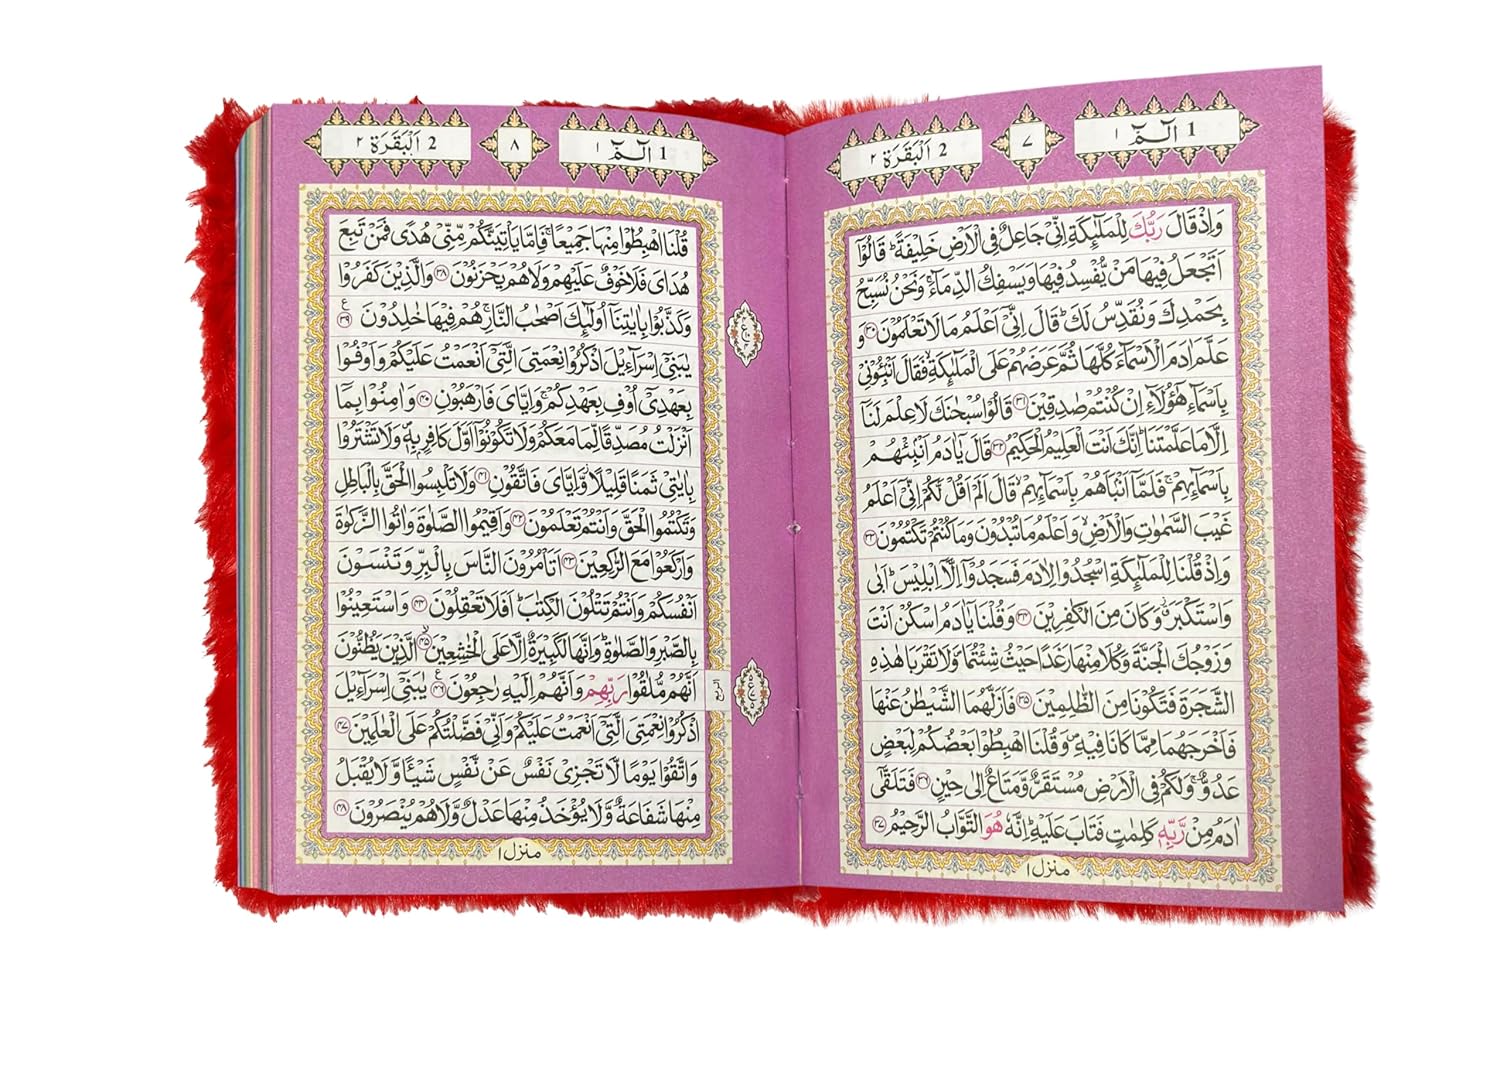 1 الٓمّٓ ١
٧
2 اَلْبَقَرَة ٢
وَاِذْ قَالَ رَبُّكَ لِلْمَلٰٓئِكَةِ اِنِّىْ جَاعِلٌ فِى الْاَرْضِ خَلِيْفَةً ؕ قَالُوْٓا
اَتَجْعَلُ فِيْهَا مَنْ يُّفْسِدُ فِيْهَا وَيَسْفِكُ الدِّمَآءَ ۚ وَنَحْنُ نُسَبِّحُ
بِحَمْدِكَ وَنُقَدِّسُ لَكَ ؕ قَالَ اِنِّىْٓ اَعْلَمُ مَا لَا تَعْلَمُوْنَ ٣٠ وَ
عَلَّمَ اٰدَمَ الْاَسْمَآءَ كُلَّهَا ثُمَّ عَرَضَهُمْ عَلَى الْمَلٰٓئِكَةِ ۙ فَقَالَ اَنْۢبِـُٔوْنِىْ
بِاَسْمَآءِ هٰٓؤُلَآءِ اِنْ كُنْتُمْ صٰدِقِيْنَ ٣١ قَالُوْا سُبْحٰنَكَ لَا عِلْمَ لَنَآ
اِلَّا مَا عَلَّمْتَنَا ؕ اِنَّكَ اَنْتَ الْعَلِيْمُ الْحَكِيْمُ ٣٢ قَالَ يٰٓاٰدَمُ اَنْۢبِئْهُمْ
بِاَسْمَآئِهِمْ ۚ فَلَمَّآ اَنْۢبَاَهُمْ بِاَسْمَآئِهِمْ ۙ قَالَ اَلَمْ اَقُلْ لَّكُمْ اِنِّىْٓ اَعْلَمُ
غَيْبَ السَّمٰوٰتِ وَالْاَرْضِ ۙ وَاَعْلَمُ مَا تُبْدُوْنَ وَمَا كُنْتُمْ تَكْتُمُوْنَ ٣٣
وَاِذْ قُلْنَا لِلْمَلٰٓئِكَةِ اسْجُدُوْا لِاٰدَمَ فَسَجَدُوْٓا اِلَّآ اِبْلِيْسَ ؕ اَبٰى
وَاسْتَكْبَرَ ٭ۗ وَكَانَ مِنَ الْكٰفِرِيْنَ ٣٤ وَقُلْنَا يٰٓاٰدَمُ اسْكُنْ اَنْتَ
وَزَوْجُكَ الْجَنَّةَ وَكُلَا مِنْهَا رَغَدًا حَيْثُ شِئْتُمَا ۪ وَلَا تَقْرَبَا هٰذِهِ
الشَّجَرَةَ فَتَكُوْنَا مِنَ الظّٰلِمِيْنَ ٣٥ فَاَزَلَّهُمَا الشَّيْطٰنُ عَنْهَا
فَاَخْرَجَهُمَا مِمَّا كَانَا فِيْهِ ۪ وَقُلْنَا اهْبِطُوْا بَعْضُكُمْ لِبَعْضٍ
عَدُوٌّ ۚ وَلَكُمْ فِى الْاَرْضِ مُسْتَقَرٌّ وَّمَتَاعٌ اِلٰى حِيْنٍ ٣٦ فَتَلَقّٰٓى
اٰدَمُ مِنْ رَّبِّهٖ كَلِمٰتٍ فَتَابَ عَلَيْهِ ؕ اِنَّهٗ هُوَ التَّوَّابُ الرَّحِيْمُ ٣٧
منزل ١
1 الٓمّٓ ١
٨
2 اَلْبَقَرَة ٢
قُلْنَا اهْبِطُوْا مِنْهَا جَمِيْعًا ۚ فَاِمَّا يَاْتِيَنَّكُمْ مِّنِّىْ هُدًى فَمَنْ تَبِعَ
هُدَاىَ فَلَا خَوْفٌ عَلَيْهِمْ وَلَا هُمْ يَحْزَنُوْنَ ٣٨ وَالَّذِيْنَ كَفَرُوْا
وَكَذَّبُوْا بِاٰيٰتِنَآ اُولٰٓئِكَ اَصْحٰبُ النَّارِ ۚ هُمْ فِيْهَا خٰلِدُوْنَ ٣٩ ع
يٰبَنِىْٓ اِسْرَآءِيْلَ اذْكُرُوْا نِعْمَتِىَ الَّتِىْٓ اَنْعَمْتُ عَلَيْكُمْ وَاَوْفُوْا
بِعَهْدِىْٓ اُوْفِ بِعَهْدِكُمْ ۚ وَاِيَّاىَ فَارْهَبُوْنِ ٤٠ وَاٰمِنُوْا بِمَآ
اَنْزَلْتُ مُصَدِّقًا لِّمَا مَعَكُمْ وَلَا تَكُوْنُوْٓا اَوَّلَ كَافِرٍۢ بِهٖ ۪ وَلَا تَشْتَرُوْا
بِاٰيٰتِىْ ثَمَنًا قَلِيْلًا ؗ وَّاِيَّاىَ فَاتَّقُوْنِ ٤١ وَلَا تَلْبِسُوا الْحَقَّ بِالْبَاطِلِ
وَتَكْتُمُوا الْحَقَّ وَاَنْتُمْ تَعْلَمُوْنَ ٤٢ وَاَقِيْمُوا الصَّلٰوةَ وَاٰتُوا الزَّكٰوةَ
وَارْكَعُوْا مَعَ الرّٰكِعِيْنَ ٤٣ اَتَاْمُرُوْنَ النَّاسَ بِالْبِرِّ وَتَنْسَوْنَ
اَنْفُسَكُمْ وَاَنْتُمْ تَتْلُوْنَ الْكِتٰبَ ؕ اَفَلَا تَعْقِلُوْنَ ٤٤ وَاسْتَعِيْنُوْا
بِالصَّبْرِ وَالصَّلٰوةِ ؕ وَاِنَّهَا لَكَبِيْرَةٌ اِلَّا عَلَى الْخٰشِعِيْنَ ٤٥ الَّذِيْنَ يَظُنُّوْنَ
اَنَّهُمْ مُّلٰقُوْا رَبِّهِمْ وَاَنَّهُمْ اِلَيْهِ رٰجِعُوْنَ ٤٦ يٰبَنِىْٓ اِسْرَآءِيْلَ
الربع
اذْكُرُوْا نِعْمَتِىَ الَّتِىْٓ اَنْعَمْتُ عَلَيْكُمْ وَاَنِّىْ فَضَّلْتُكُمْ عَلَى الْعٰلَمِيْنَ ٤٧
وَاتَّقُوْا يَوْمًا لَّا تَجْزِىْ نَفْسٌ عَنْ نَّفْسٍ شَيْـًٔا وَّلَا يُقْبَلُ
مِنْهَا شَفَاعَةٌ وَّلَا يُؤْخَذُ مِنْهَا عَدْلٌ وَّلَا هُمْ يُنْصَرُوْنَ ٤٨
منزل ١